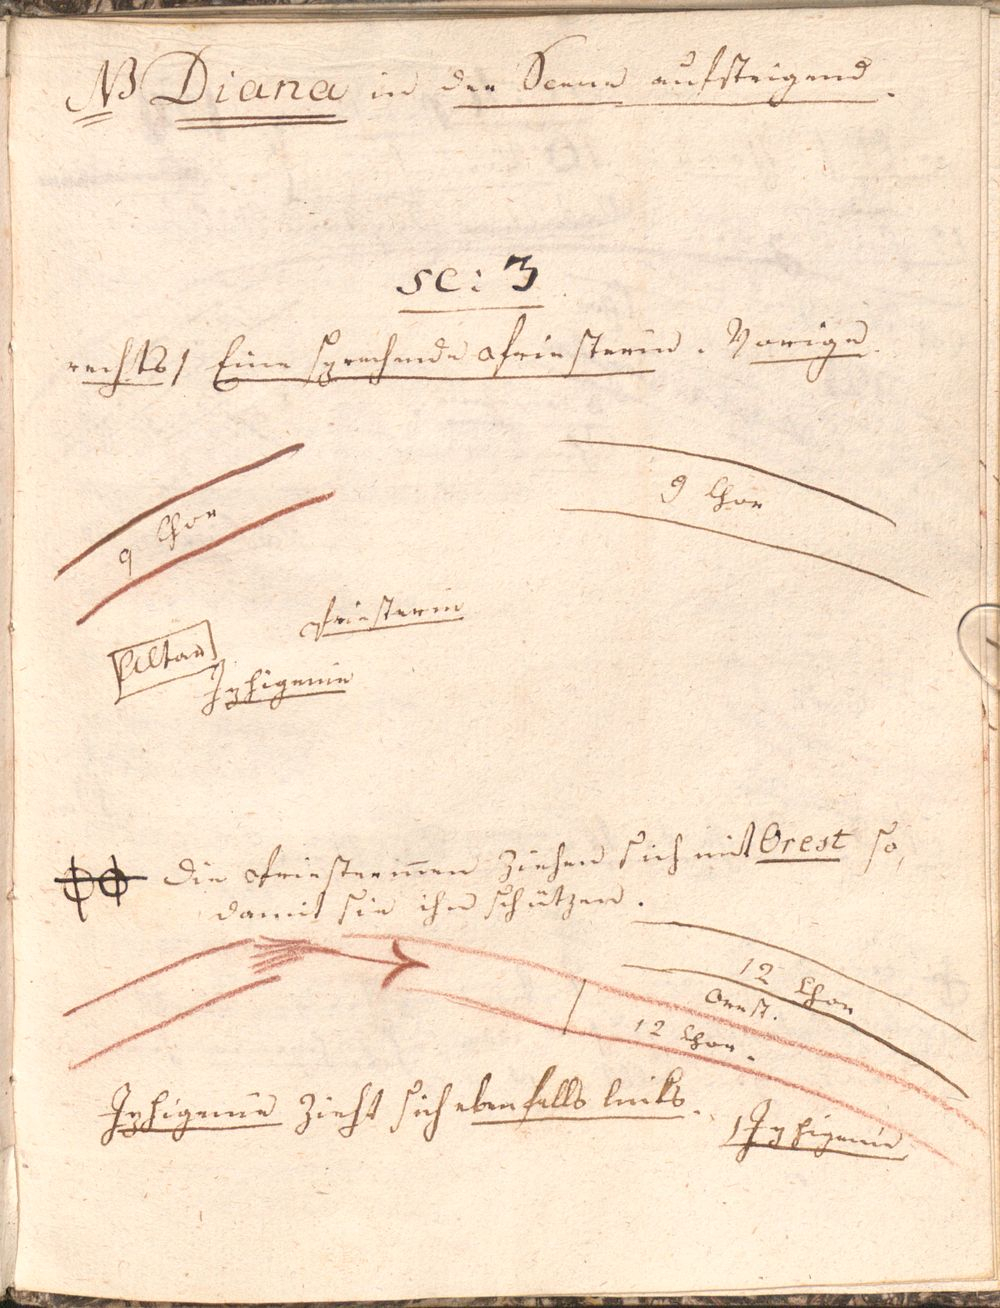 NB Diana in der Scene aufsteigend.
sc: 3
rechts / Eine sprechende Priesterin. Vorige
9 Chor
9 Chor
Priesterin
Altar
Iphigenie
Die Priesterinnen ziehen sich mit Orest so,
damit sie ihn schützen.
12 Chor
Orest.
12 Chor.
Iphigenie zieht sich ebenfalls links.
Iphigenie